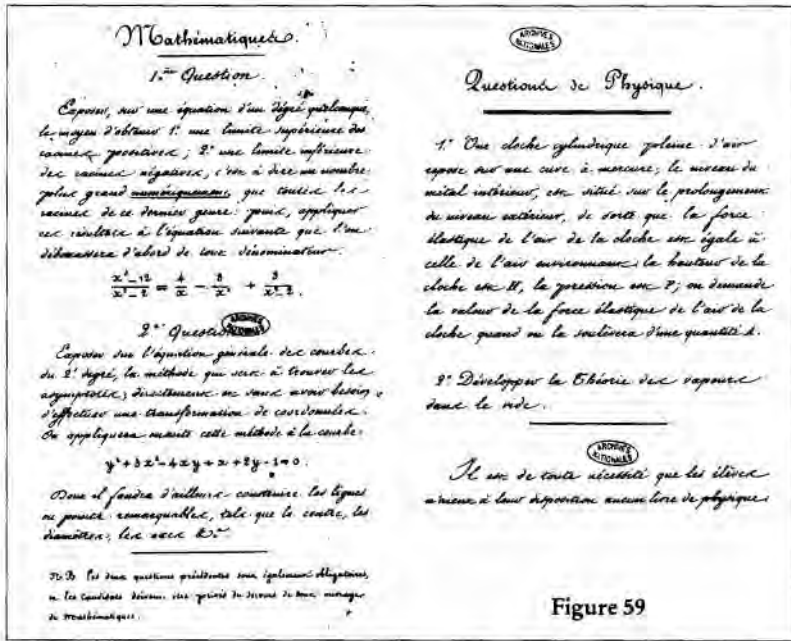 Mathématiques.
1.ère Question.
Exposer, sur une équation d'un dégré quelconque,
le moyen d'obtenir 1.° une limite supérieure des
racines positives; 2.° une limite inférieure
des racines négatives, c'est à dire un nombre
plus grand numériquement que toutes les
racines de ce dernier genre: puis, appliquer
ces résultats à l'équation suivante que l'on
débarassera d'abord de tout dénominateur.
= 4/x - +
2.e Question
Exposer sur l'équation générale des courbes
du 2.e degré, la méthode qui sert à trouver les
asymptotes; directement et sans avoir besoin
d'effectuer une transformation de coordonnées.
On appliquera ensuite cette méthode à la courbe:
y²+3x²-4xy+x+2y-1=0.
Donc il faudra d'ailleurs construire les lignes
ou points remarquables, tels que le centre, les
diamètres, les axes &.a
N.B. Les deux questions précédentes sont également obligatoires,
et les candidats doivent être privés du secours de tout ouvrage
de Mathématiques.
ARCHIVES NATIONALES
ARCHIVES NATIONALES
Questions de Physique.
1.° Une cloche cylindrique pleine d'air
repose sur une cuve à mercure; le niveau du
métal intérieur, est situé sur le prolongement
du niveau extérieur, de sorte que la force
élastique de l'air de la cloche est égale à
celle de l'air environnant: la hauteur de la
cloche est H, la pression est P; on demande
la valeur de la force élastique de l'air de la
cloche quand on la soulèvera d'une quantité
2.° Développer la Théorie des vapeurs
dans le vide.
ARCHIVES NATIONALES
Il est de toute nécessité que les élèves
n'aient à leur disposition aucun livre de physique.
Figure 59